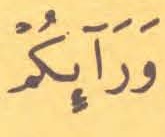 وَرَآىِٕكُمْ